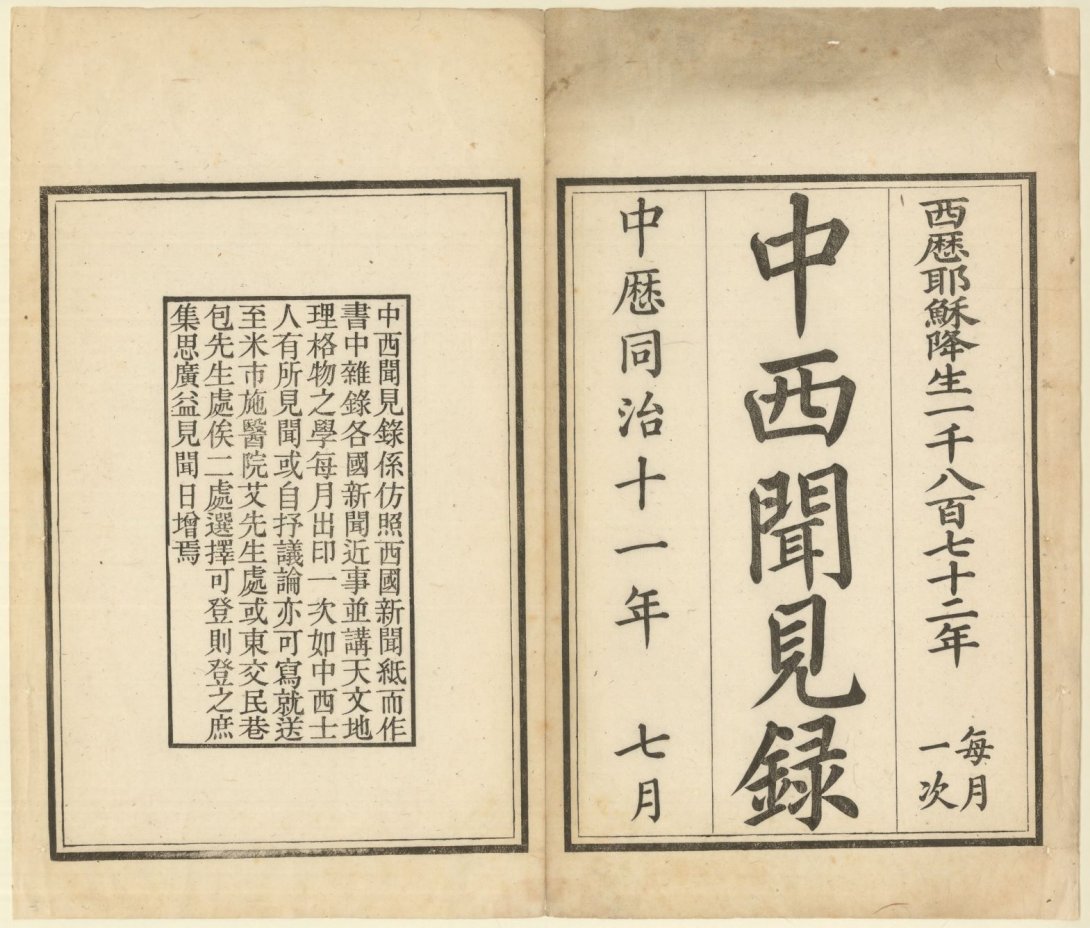 西歷耶穌降生一千八百七十二年
每月
一次
中西聞見録
中歷同治十一年 七月
中西聞見錄係仿照西國新聞紙而作
書中雜錄各國新聞近事並講天文地
理格物之學每月出印一次如中西士
人有所見聞或自抒議論亦可寫就送
至米市施醫院艾先生處或東交民巷
包先生處俟二處選擇可登則登之庶
集思廣益見聞日增焉